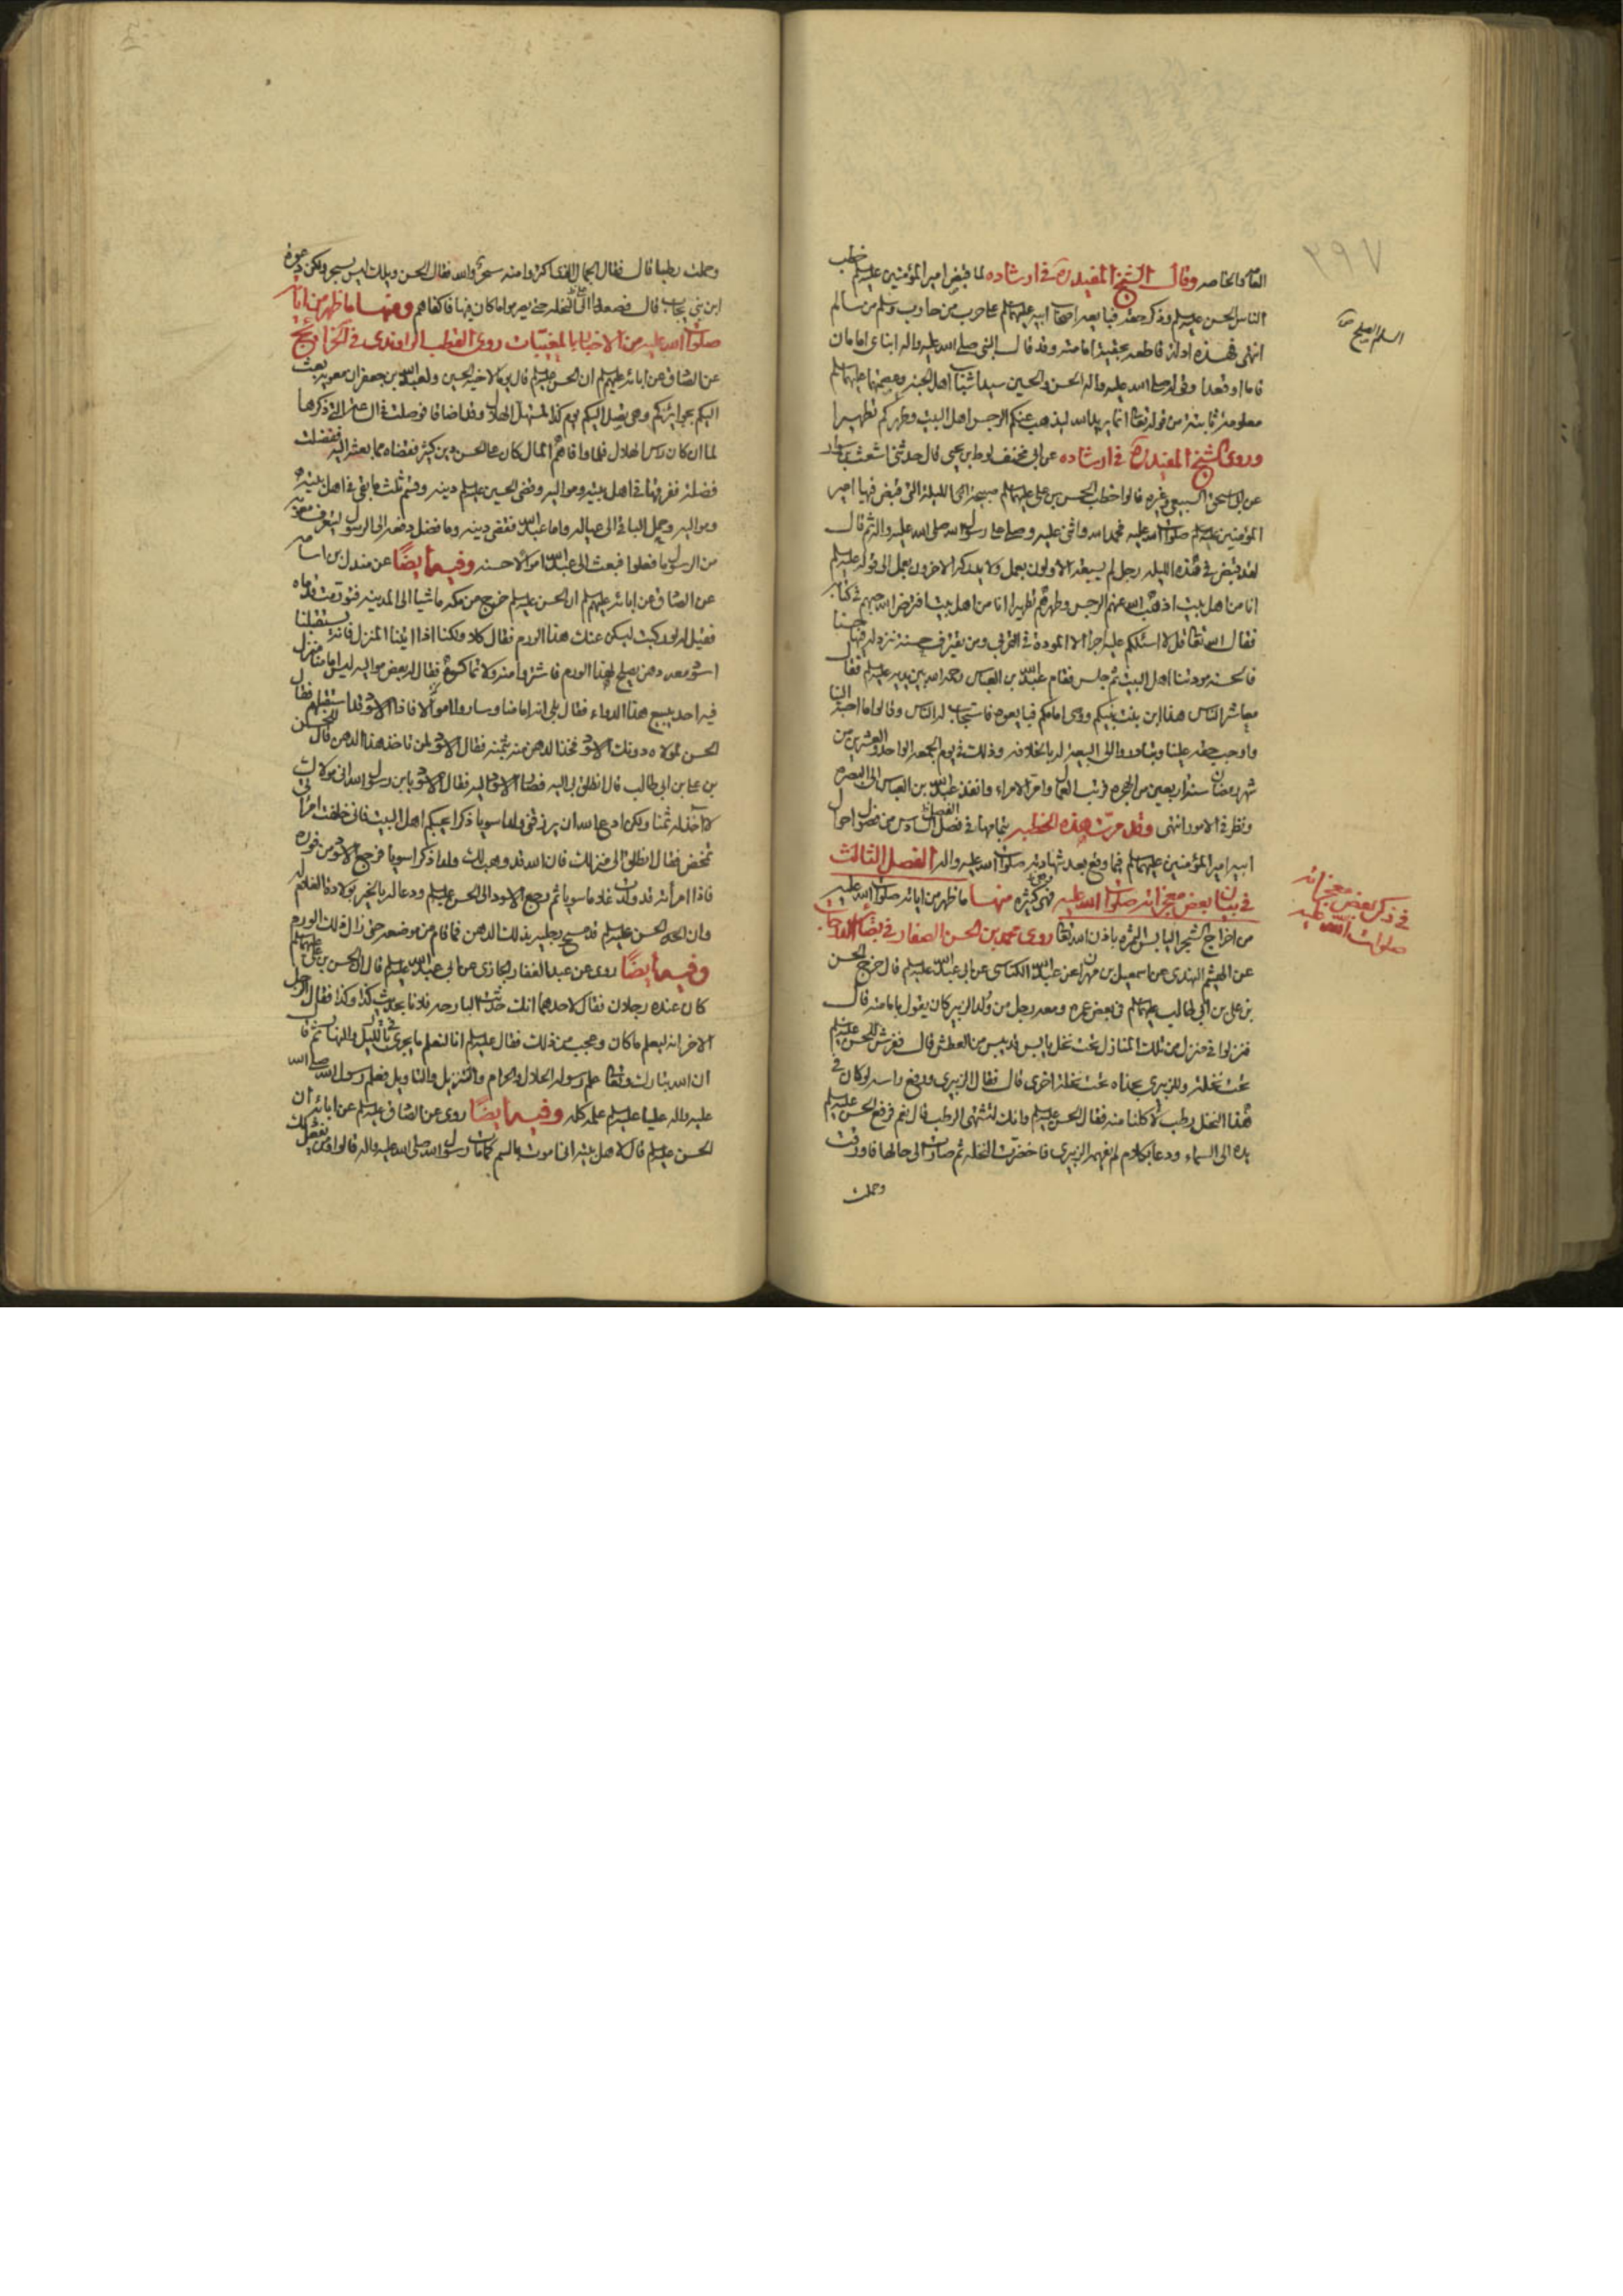 العامة والخاصة وقال الشيخ المفيد ره في ارشاده لما قبض امير المؤمنين عليه السلم خطب
الناس الحسن عليه السلم وذكر حقه فبايعه اصحاب ابيه عليهما السلم على حرب من حارب وسلم من سالم
انتهى فهذه ادلة قاطعة بحقية امامته وقد قال النبي صلى الله عليه واله ابناي امامان
قاما او قعدا وقوله صلى الله عليه واله الحسن والحسين سيدا شباب اهل الجنة وعصمتهما عليهما السلم
معلومة ثابتة من قوله تعالى انما يريد الله ليذهب عنكم الرجس اهل البيت ويطهركم تطهيرا
وروى الشيخ المفيد ره في ارشاده عن ابي مخنف لوط بن يحيى قال حدثني اشعث بن سوار
عن ابي اسحق السبيعي وغيره قالوا خطب الحسن بن علي عليهما السلم صبيحة الليلة التي قبض فيها امير
المؤمنين عليه السلم صلوات الله عليه فحمد الله واثنى عليه وصلى على رسول الله صلى الله عليه واله ثم قال
لقد قبض في هذه الليلة رجل لم يسبقه الاولون بعمل ولا يدركه الاخرون بعمل الى قوله عليه السلم
انا من اهل بيت اذهب الله عنهم الرجس وطهرهم تطهيرا انا من اهل بيت افترض الله حبهم في كتابه
فقال الله تعالى قل لا اسئلكم عليه اجرا الا المودة في القربى ومن يقترف حسنة نزد له فيها حسنا
فالحسنة مودتنا اهل البيت ثم جلس فقام عبد الله بن العباس رحمه الله بين يديه عليه السلم فقال
معاشر الناس هذا ابن بنت نبيكم ووصي امامكم فبايعوه فاستجاب له الناس وقالوا ما احبه الينا
واوجب حقه علينا وبادروا الى البيعة له بالخلافة وذلك في يوم الجمعة الواحد والعشرين من
شهر رمضان سنة اربعين من الهجرة فرتب العمال وامر الامراء وانفذ عبد الله بن العباس الى البصرة
ونظر في الامور انتهى وقد مرت هذه الخطبة بتمامها في فصل السادس من فصول احوال
ابيه امير المؤمنين عليهما السلم فيما وقع بعد شهادته صلوات الله عليه واله الفصل الثالث
في بيان بعض معجزاته صلوات الله عليه وهي كثيرة منها ما ظهر من اياته صلوات الله عليه
من اخراج الشجر اليابس الثمرة باذن الله تعالى روى محمد بن الحسن الصفار في بصائر الدرجات
عن الهيثم النهدي عن اسمعيل بن مهران عن عبد الله الكناسي عن ابي عبد الله عليه السلم قال خرج الحسن
بن علي بن ابي طالب عليهما السلم في بعض عمره ومعه رجل من ولد الزبير كان يقول بامامته قال
فنزلوا في منزل من تلك المنازل تحت نخل يابس قد يبس من العطش قال ففرش للحسن عليه السلم
تحت نخلة وللزبيري بحذاه تحت نخلة اخرى قال فقال الزبيري ورفع راسه لو كان في
هذا النخل رطب لاكلنا منه فقال الحسن عليه السلم وانك لتشتهي الرطب قال نعم فرفع الحسن عليه السلم
يده الى السماء ودعا بكلام لم يفهمه الزبيري فاخضرت النخلة ثم صارت الى حالها فاورقت
وحملت
في ذكر بعض معجزاته
صلوات الله عليه
٢٩٧
وحملت رطبا قال فقال الجمال الذي اكتروا منه سحر والله فقال الحسن ويلك ليس بسحر ولكن دعوة
ابن نبي يجاب قال فصعدوا الى النخلة حتى يصرموا ما كان فيها فاكفاهم ومنها ما ظهر من اياته
صلوات الله عليه من الاخبار بالمغيبات روى القطب الراوندي في الخرائج
عن الصادق عن ابائه عليهم السلم ان الحسن عليه السلم قال يوما لاخيه الحسين ولعبد الله بن جعفر ان معوية بعث
اليكم بجوائزكم وهي تصل اليكم يوم كذا لمستهل الهلال وقد اضاقا فوصلت في الساعة التي ذكرها
لما ان كان راس الهلال فلما وافاهم المال كان على الحسن دين كثير فقضاه مما بعثه اليه ففضلت
فضلة ففرقها في اهل بيته ومواليه وقضى الحسين عليه السلم دينه وقسم ثلث ما بقي في اهل بيته
ومواليه وحمل الباقي الى عياله واما عبد الله فقضى دينه وما فضل دفعه الى الرسول ليتعرف معوية
من الرسول ما فعلوا فبعث الى عبد الله اموالا حسنة وفيه ايضًا عن مندل بن اسامة
عن الصادق عن ابائه عليهم السلم ان الحسن عليه السلم خرج من مكة ماشيا الى المدينة فتورمت قدماه
فقيل له لو ركبت ليسكن عنك هذا الورم فقال كلا ولكنا اذا اتينا المنزل فانه يستقبلنا
اسود معه دهن يصلح لهذا الورم فاشتروا منه ولا تماكسوه فقال له بعض مواليه ليس امامنا منزل
فيه احد يبيع هذا الدواء فقال بلى انه امامنا وساروا اميالا فاذا الاسود قد استقبلهم فقال
الحسن لمولاه دونك الاسود فخذ الدهن منه بثمنه فقال الاسود لمن تاخذ هذا الدهن قال للحسن
بن علي بن ابي طالب قال انطلق بي اليه فصار الاسود اليه فقال الاسود يا بن رسول الله اني مولاك
لا اخذ له ثمنا ولكن ادع الله ان يرزقني ولدا سويا ذكرا يحبكم اهل البيت فاني خلفت امراتي
تمخض فقال انطلق الى منزلك فان الله قد وهب لك ولدا ذكرا سويا فرجع الاسود من فوره
فاذا امراته قد ولدت غلاما سويا ثم رجع الاسود الى الحسن عليه السلم ودعا له بالخير بولادة الغلام له
وان الحسن عليه السلم قد مسح رجليه بذلك الدهن فما قام من موضعه حتى زال ذلك الورم
وفيه ايضًا روى عن عبد الغفار الجازي عن ابي عبد الله عليه السلم قال ان الحسن بن علي عليهما السلم
كان عنده رجلان فقال لاحدهما انك حدثت البارحة فلانا بحديث كذا وكذا فقال الرجل
الاخر انه ليعلم ما كان وعجب من ذلك فقال عليه السلم انا لنعلم ما يجري في الليل والنهار ثم قال
ان الله تبارك وتعالى علم رسوله الحلال والحرام والتنزيل والتاويل فعلم رسول الله صلى الله
عليه واله عليا عليه السلم علمه كله وفيه ايضًا روى عن الصادق عليه السلم عن ابائه ان
الحسن عليه السلم قال لاهل بيته اني اموت بالسم كما مات رسول الله صلى الله عليه واله قالوا ومن يفعل ذلك